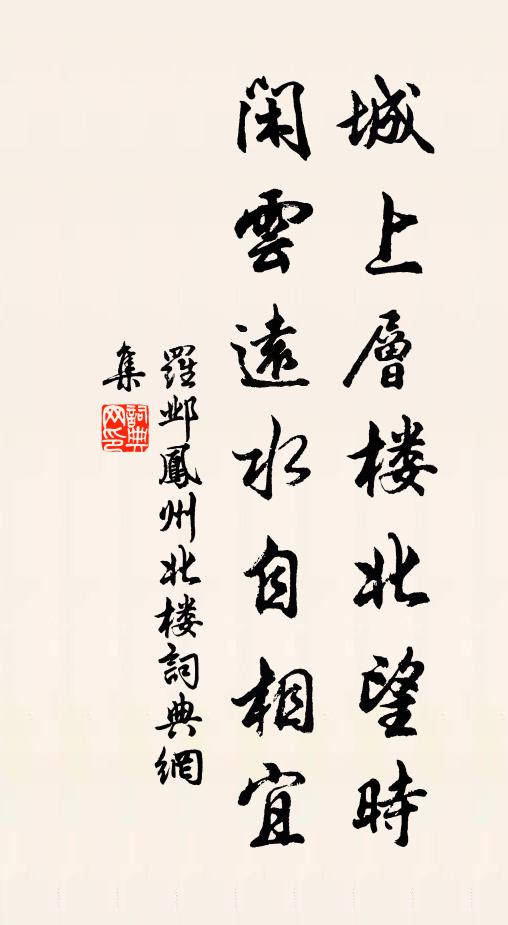 城上層楼北望時
閑雲遠水自相宜
羅邺鳳州北楼詞典網
集
詞典網印